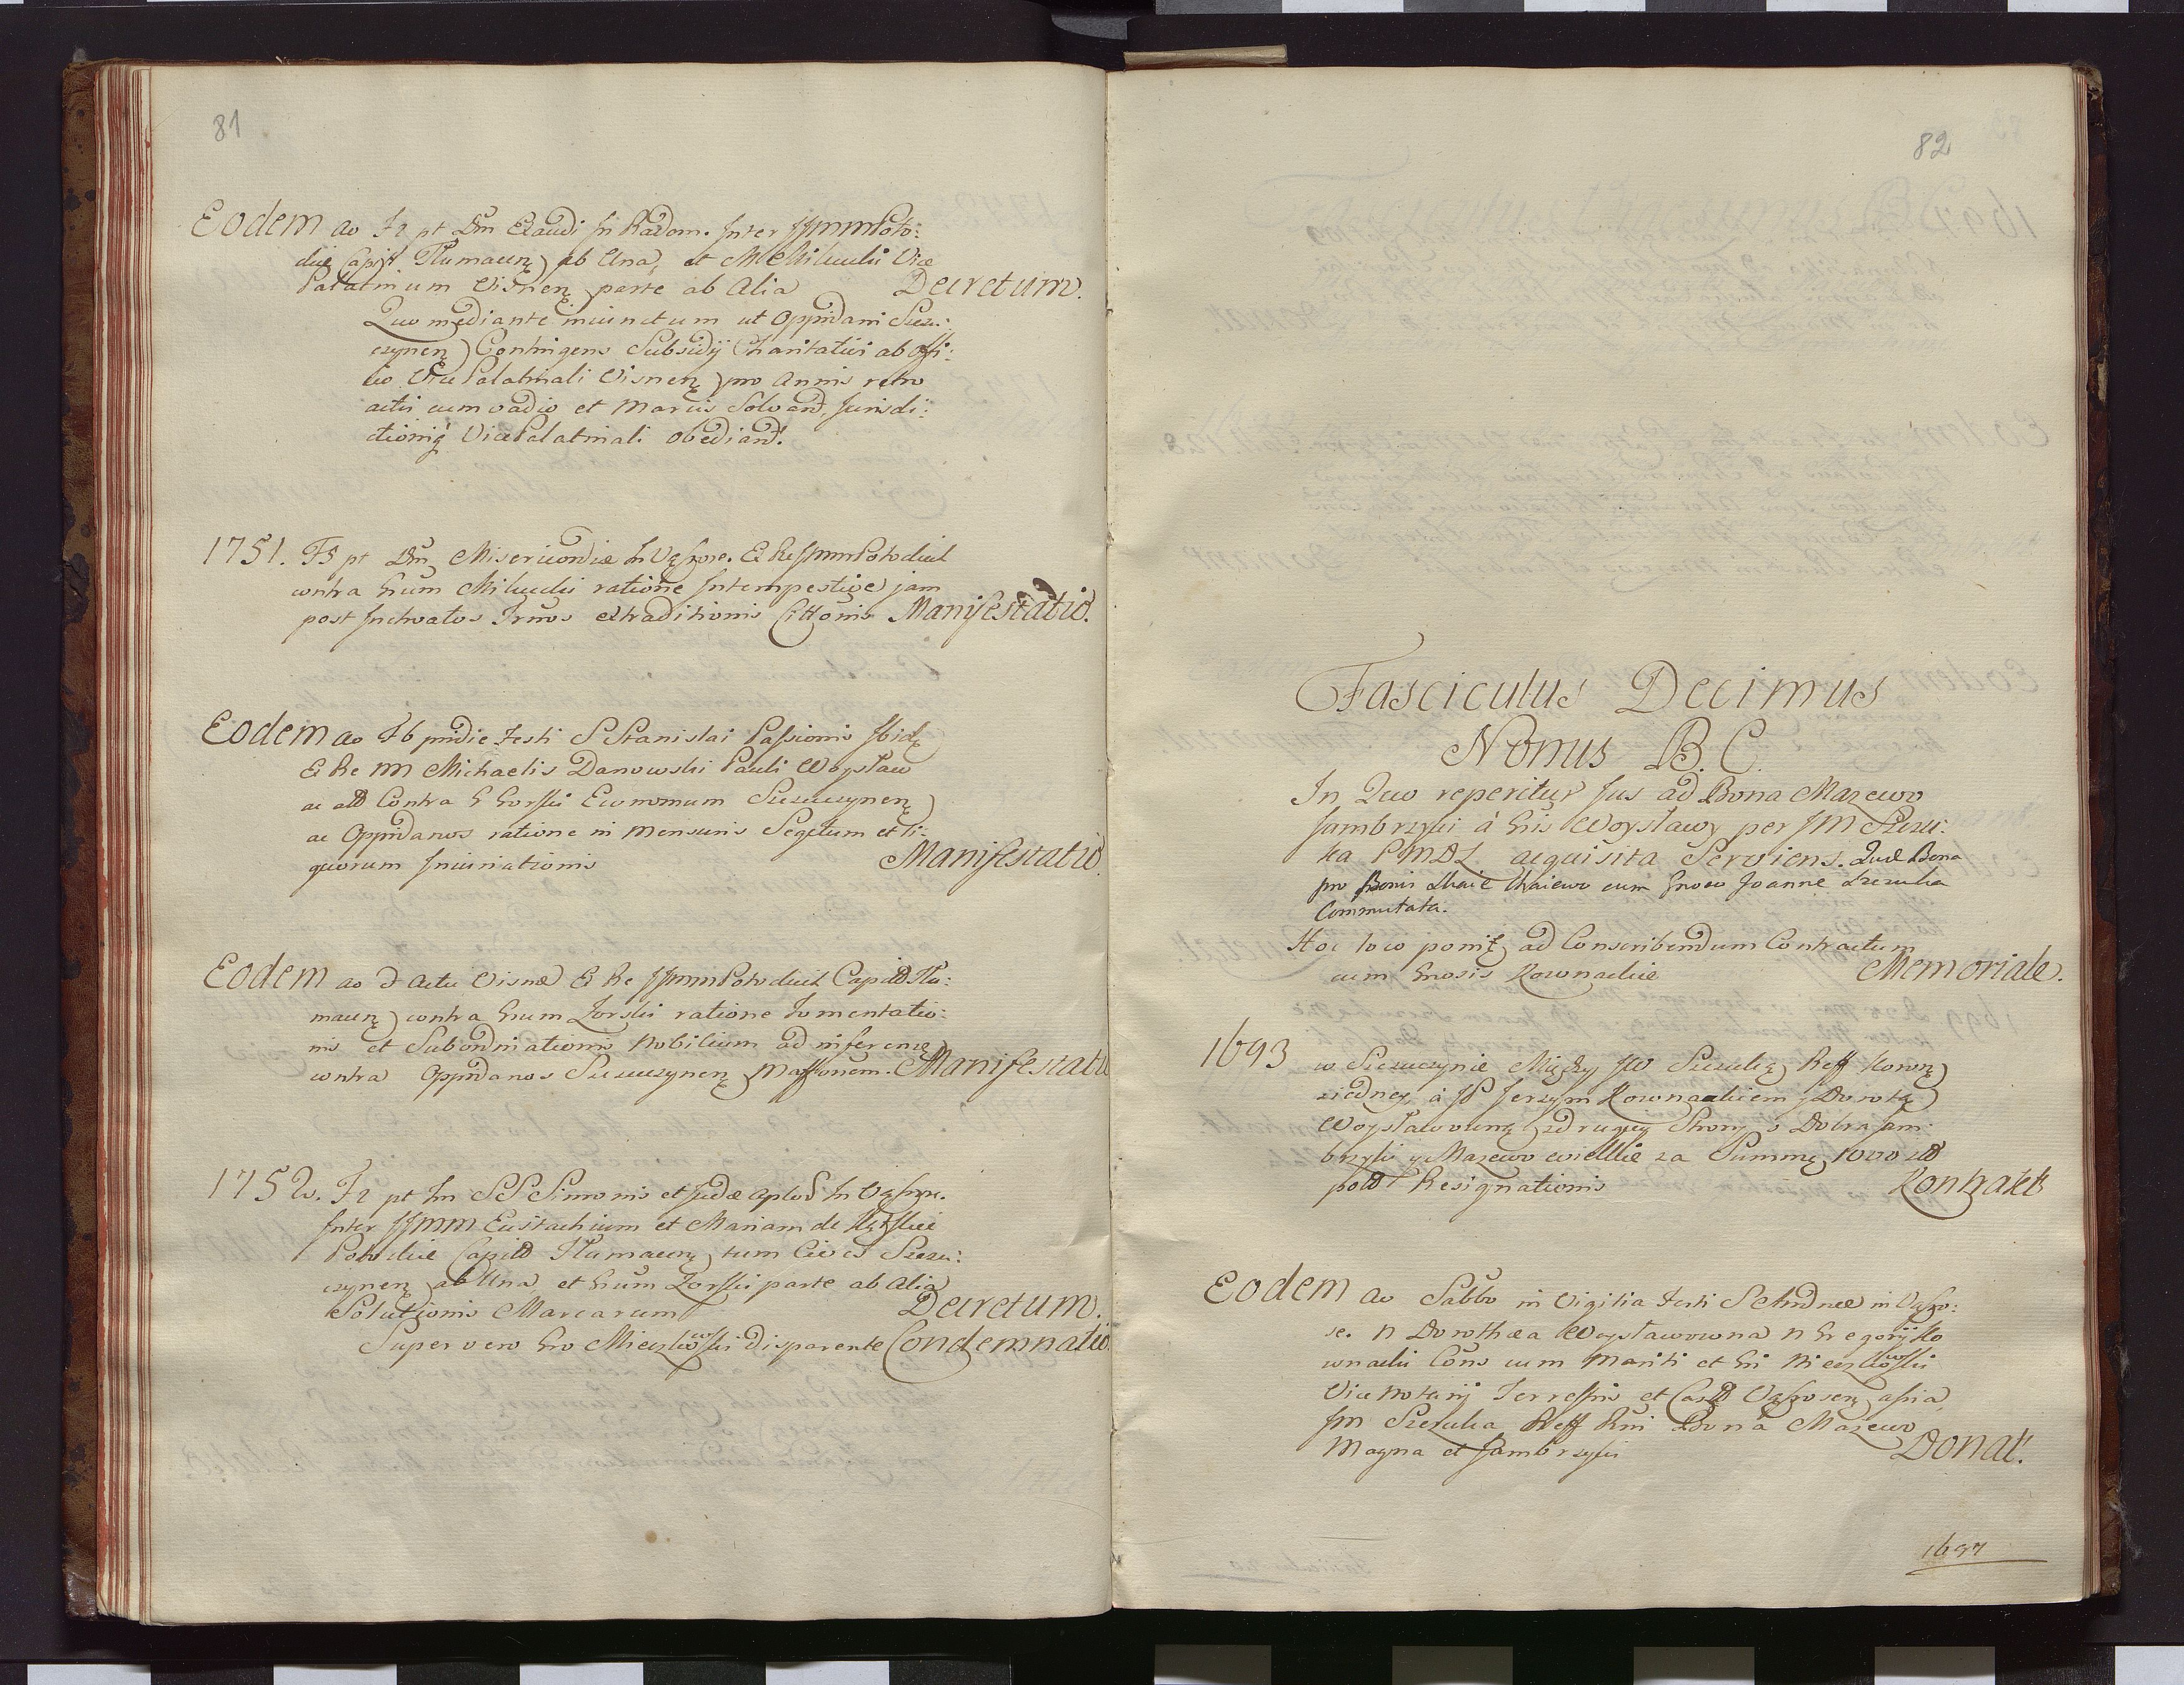 81
Eodem ao F2 pt Dm Exaudi In Radom. Inter JJmm Poto:
ckie Capist Tlumacen ab Una, et M Milucki Vice
Palatinum Visnen parte ab Alia Decretum.
Quo mediante iniunctum ut Oppidani Szczu:
czynen Contingens Subsidij Charitativi ab offi:
cio Vice Palatinali Visnen pro Annis retro
actis cum vadio et Marcis Solvand, Jurisdi:
ctioniq Vice Palatinali obediand.
1751. F5 pt Dm Misericordiæ In Vąsosze. Ex Re JJmm Potockich
contra Gnum Milucki ratione Intempestive jam
post Inchoatos Trnos extraditionis Cittonis Manifestatio.
Eodem ao F6 pridie Festi S Stanislai Passionis Ibid
Ex Re NN Michaelis Danowski Pauli Woysław
ac alt Contra G Gorski Economum Szczuczynen
ac Oppidanos ratione in mensuris Segetum et li:
quorum Iniuriationis Manifestatio.
Eodem ao d Actu Visnæ Ex Re JJmm Potockich Capit Tłu:
macen contra Gnum Zorski ratione Fomentatio:
nis et Subordinationis Nobilium ad inferenc
contra Oppidanos Szczuczynen Maffonem. Manifestatio
1752. F2 pt Fm SS Simonis et Judæ Aplos In Vąsosze.
Inter JJmm Eustachium et Mariam de Kątskie
Potockie Capit Tłumacen tum Cives Szczu:
czynen ab Una, et Gnum Zorski parte ab Alia
Solutionis Marcarum Decretum.
Super vero Gno Mieczkowski disparente Condemnatio.
82
Fasciculus Decimus
Nonus B. C.
In Quo reperitur Jus ad Bona Mazewo
Jambrzyki à Gnis Woysławy per JM Szczu:
ka PMDL acquisita Serviens. Quæ Bona
pro Bonis Chaie Chaiewo cum Gnoso Joanne Szczuka
Commutata.
Hoc loco ponit ad Conscribendum Contractum
cum Gnosis Kownackie Memoriale.
1693 w Szczuczynie Między JW Szczuką Reff Koron
ziedney, à JP Jerzym Kownackiem y Dorotą
Woysławowną zdrugiey Strony o Dobra Jam:
brzyki y Mazewo wielkie za Summę 1000 zł
polt Resignationis Kontrakt
Eodem ao Sabbo in Vigilia Festi S Andreæ in Vąso:
se. N Dorothæa Woysławowna N Gregorij Ko
wnacki Cons cum Mariti et Gni Mieczkowski
Vice Notarij Terrestris et Cast Vąsosen assia,
Jm Szczuka Reff Rni Bona Mazewo
Magna et Jambrzyki Donat.
1697